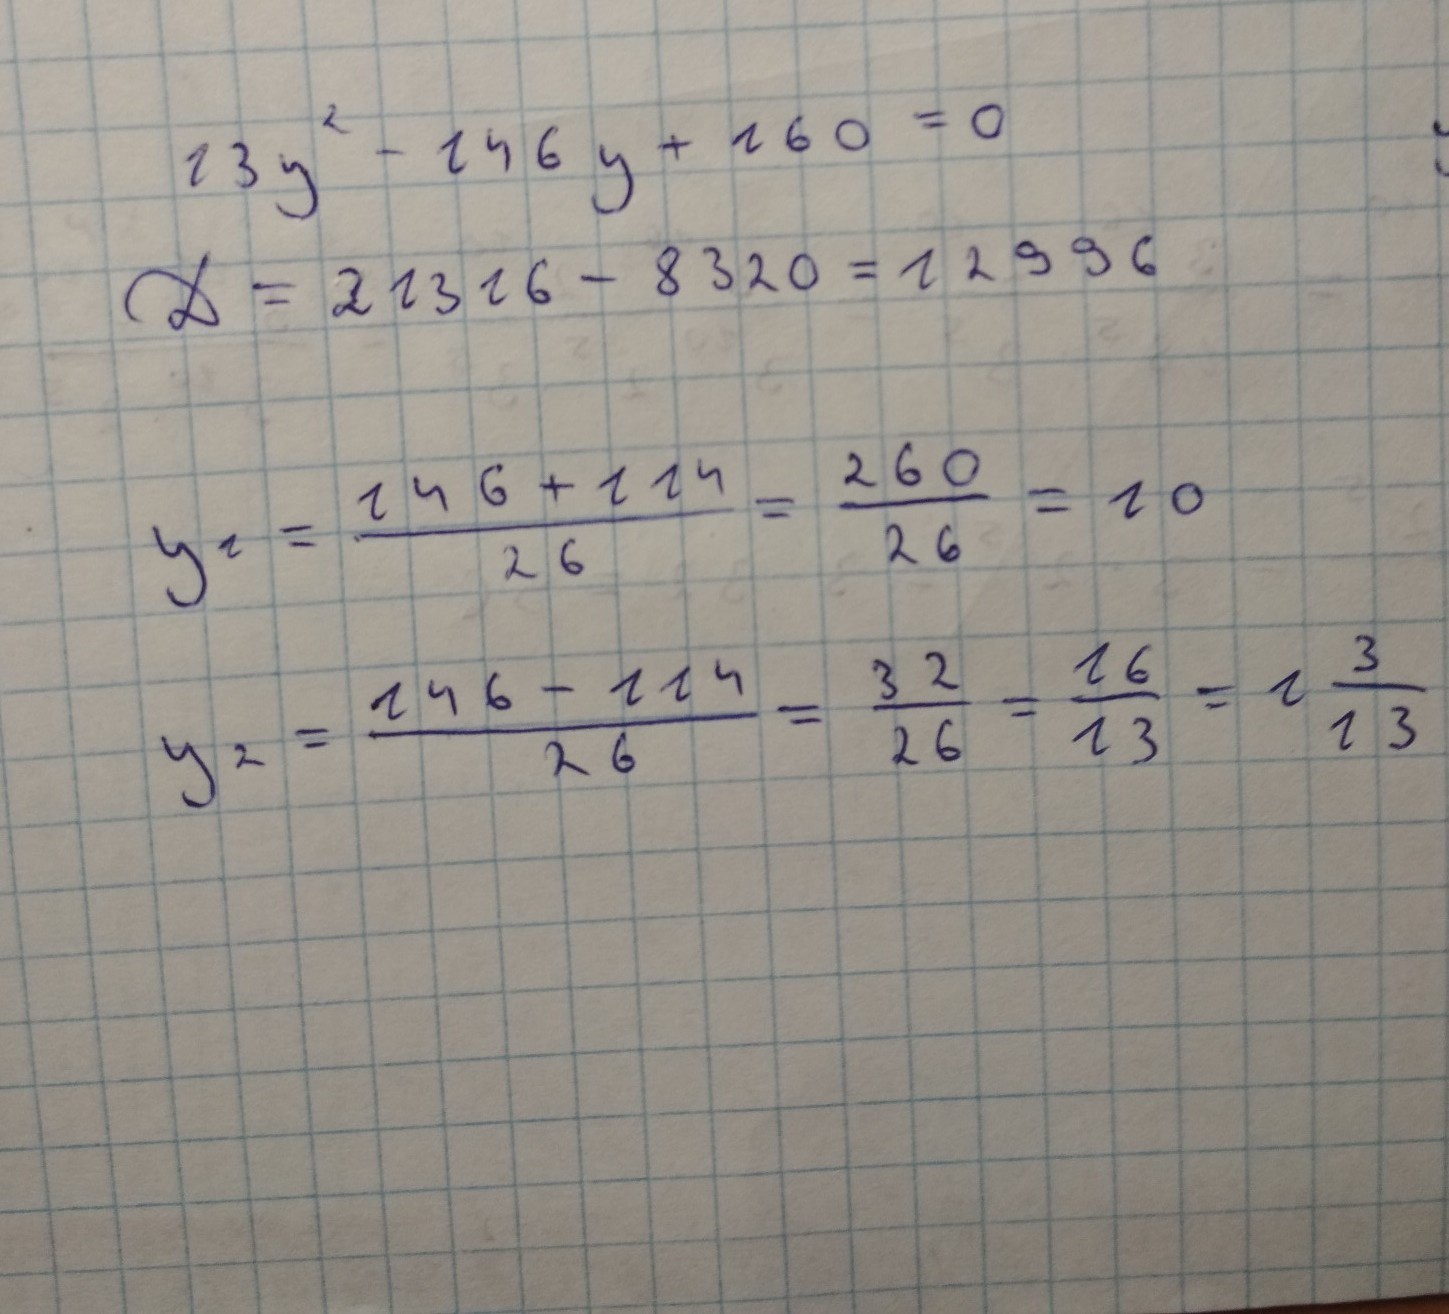 13y² - 146y + 160 = 0
D = 21316 - 8320 = 12996
y₁ = (146 + 114)/26 = 260/26 = 10
y₂ = (146 - 114)/26 = 32/26 = 16/13 = 1 3/13